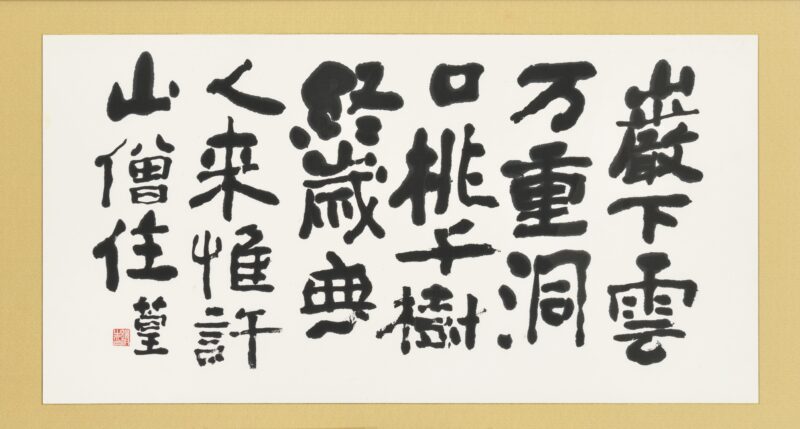 巌下雲
万重洞
口桃千樹
終歳無
人来惟許
山僧住 篁